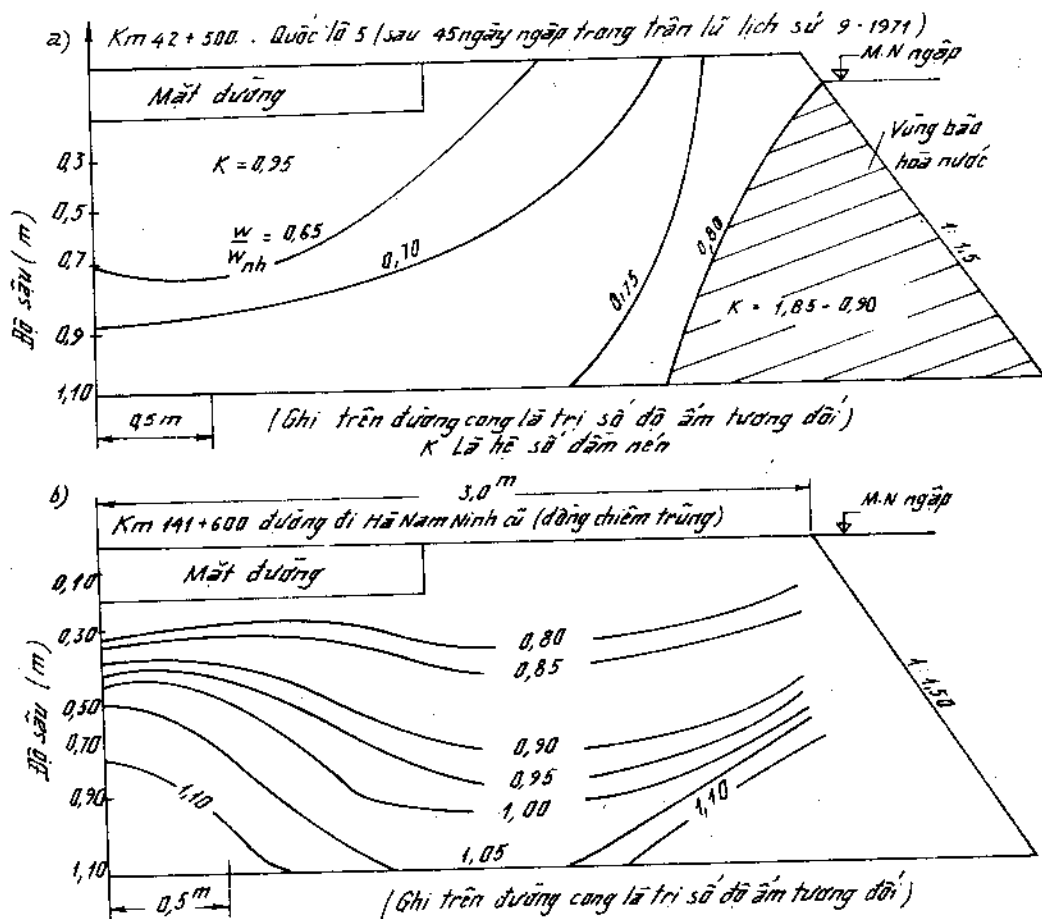 a) Km 42 + 500 . Quốc lộ 5 (sau 45 ngày ngập trong trận lũ lịch sử 9 - 1971)
M.N ngập
Mặt đường
Vùng bão
hòa nước
K = 0,95
0,3
0,5
0,7
0,9
1,10
Độ sâu (m)
w/Wnh = 0,65
0,70
0,75
0,80
1: 1,5
K = 1,85 - 0,90
0,5m
(Ghi trên đường cong là trị số độ ẩm tương đối)
K Là hệ số đầm nén
b)
3,0 m
M.N ngập
Km 141 + 600 đường đi Hà Nam Ninh cũ (đồng chiêm trũng)
Mặt đường
0,10
0,30
0,50
0,70
0,90
1,10
Độ sâu (m)
0,80
0,85
0,90
0,95
1,00
1,05
1,10
1,10
1: 1,50
0,5 m
(Ghi trên đường cong là trị số độ ẩm tương đối)